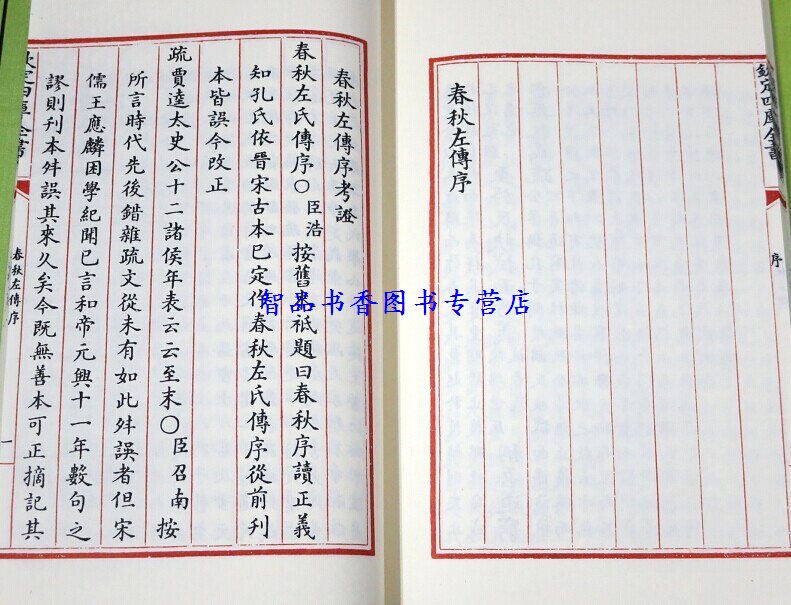 欽定四庫全書
序
春秋左傳序
春秋左傳序考證
春秋左氏傳序○臣浩按舊本祗題曰春秋序讀正義
知孔氏依晉宋古本已定作春秋左氏傳序從前刊
本皆誤今改正
疏賈逵太史公十二諸侯年表云云至末○臣召南按
所言時代先後錯雜疏文從未有如此舛誤者但宋
儒王應麟困學紀聞已言和帝元興十一年數句之
謬則刊本舛誤其來久矣今既無善本可正摘記其
欽定四庫全書
春秋左傳序
一
智品书香图书专营店